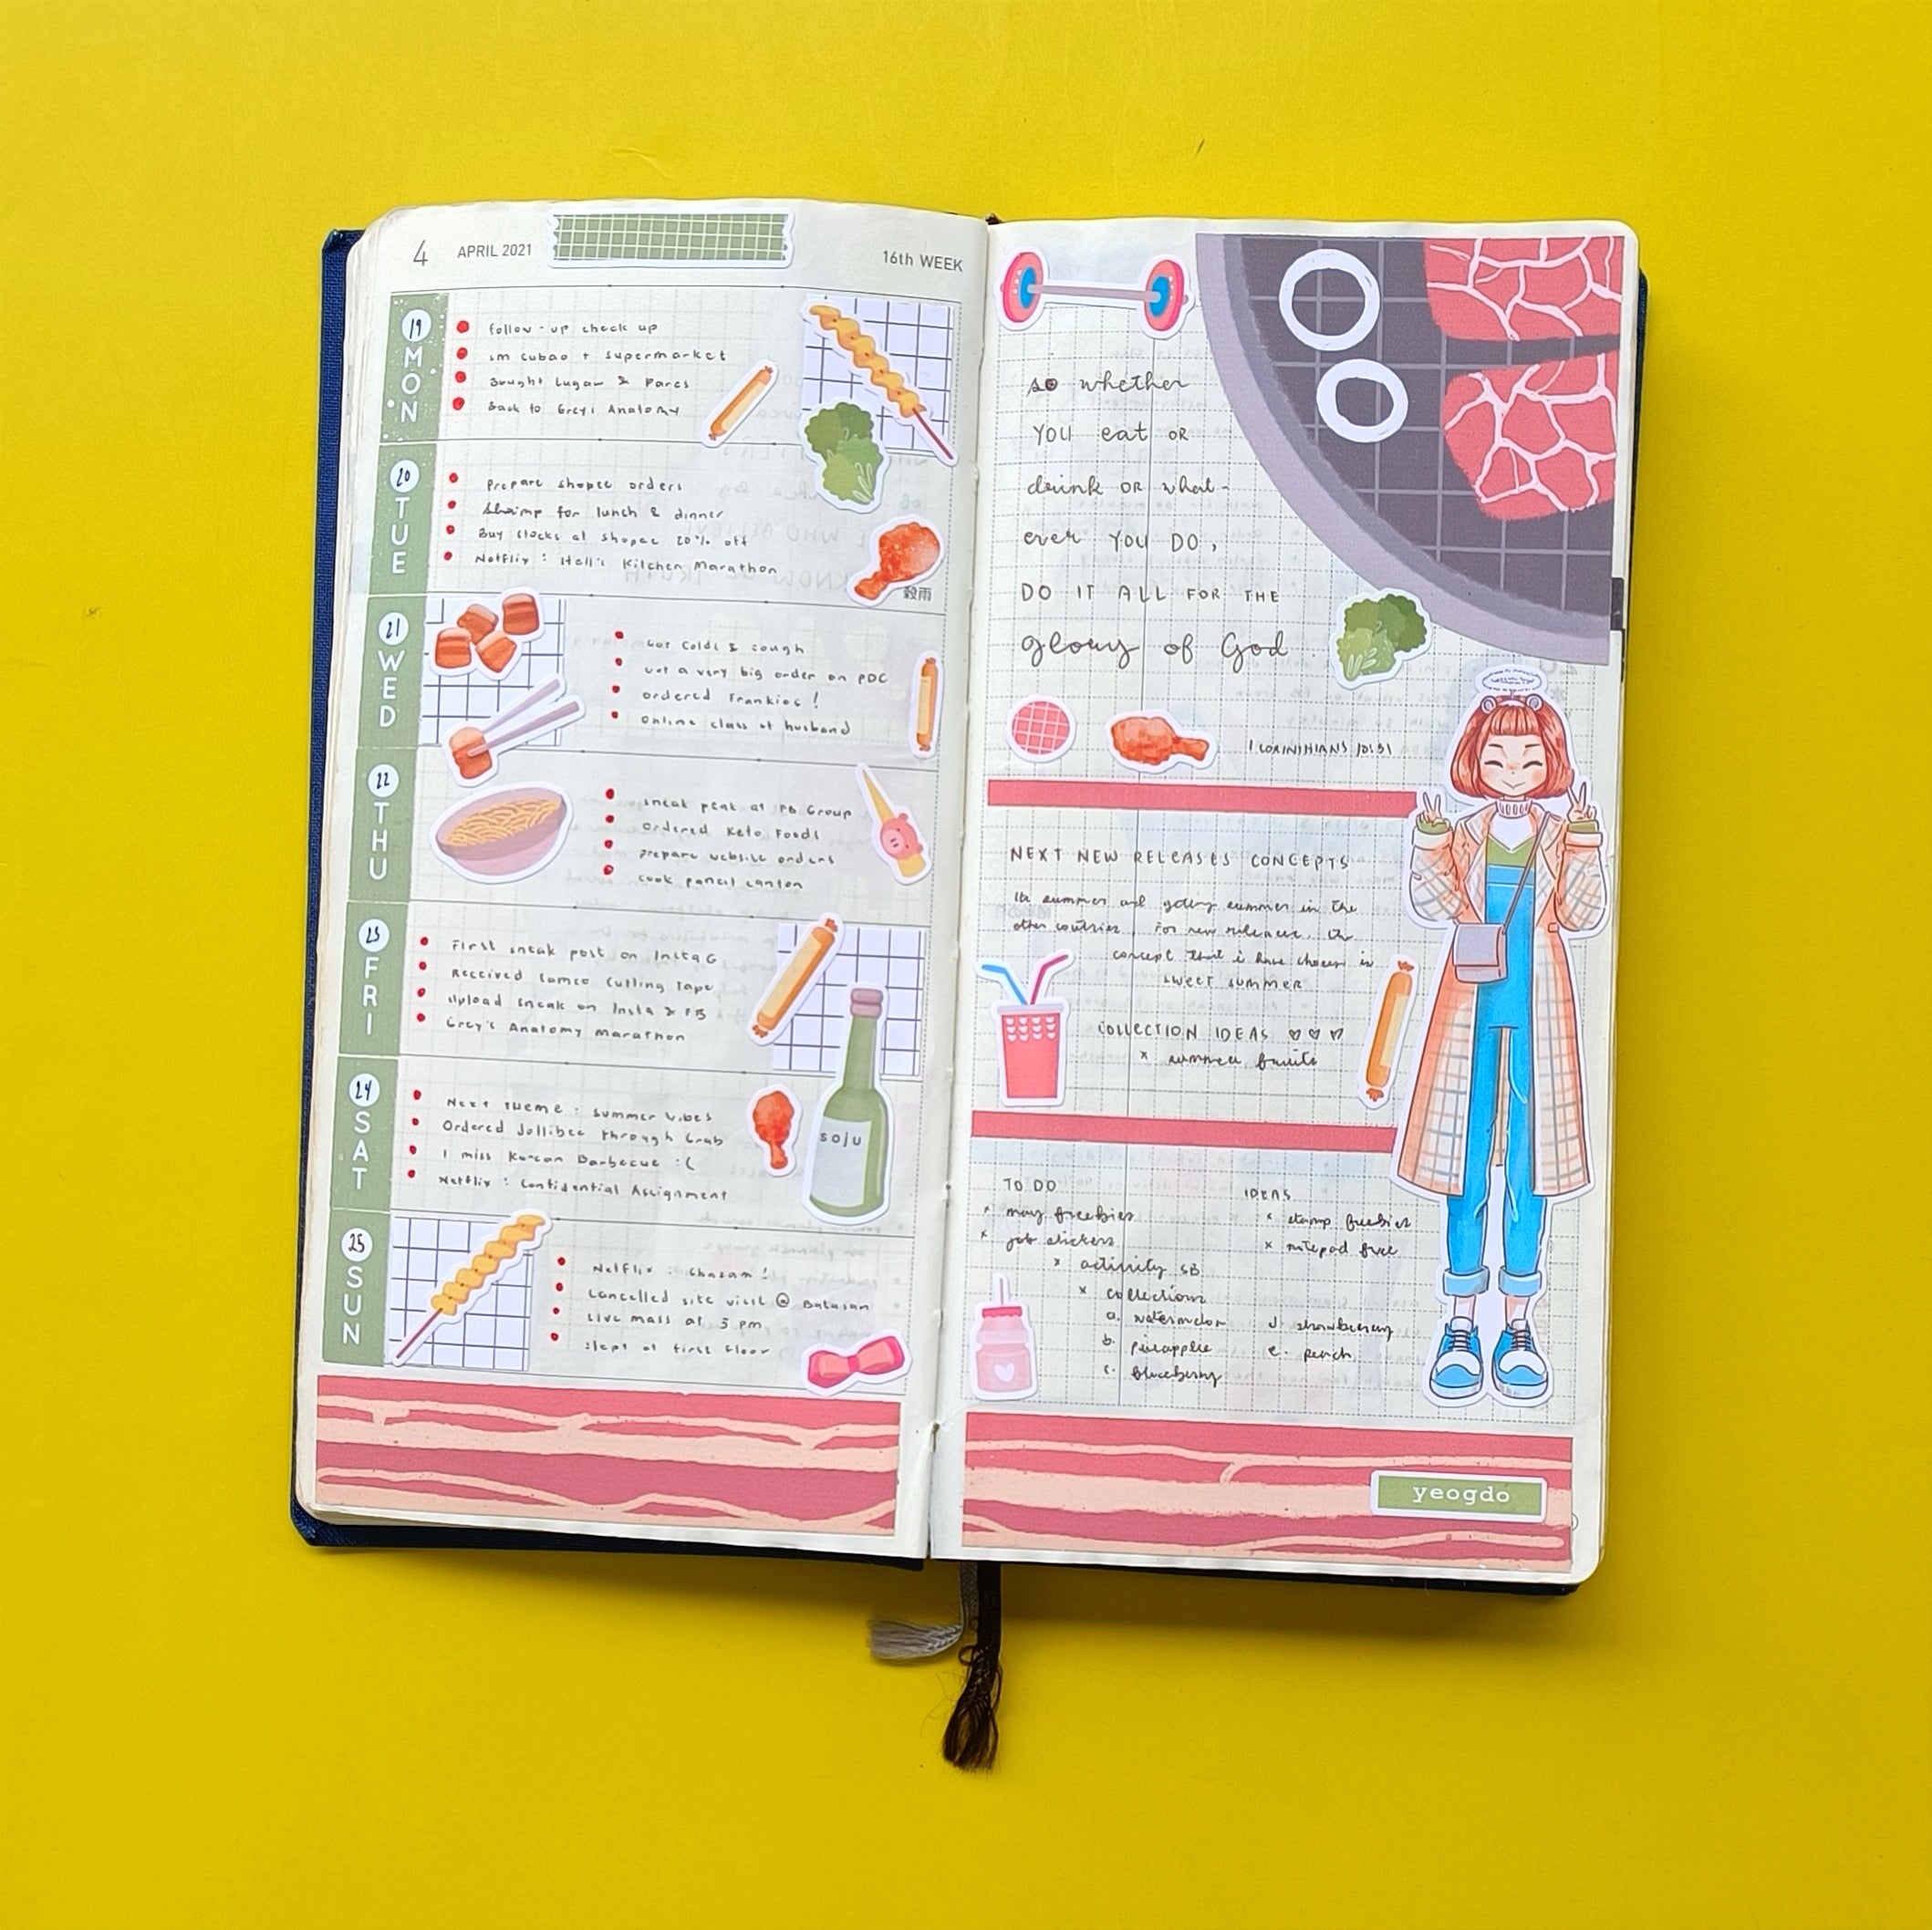 4 APRIL 2021
16th WEEK
19 MON
follow-up check up
sm cubao + supermarket
Bought Lugaw & Pares
Back to Greys Anatomy
20 TUE
Prepare shopee orders
Shrimp for lunch & dinner
Buy stocks at shopee 20% off
Netflix : Hell's Kitchen Marathon
穀雨
21 WED
Got Colds & cough
Got a very big order on PDC
ordered Frankies !
Online class of husband
22 THU
sneak peak at FB Group
Ordered Keto Foods
prepare website orders
cook pancit canton
23 FRI
First sneak post on Insta G
Received Cutting Tape
Upload sneak on Insta & FB
Grey's Anatomy Marathon
24 SAT
Next theme : summer vibes
Ordered Jollibee through Grab
I miss Korean Barbecue :(
Netflix : Confidential Assignment
soju
25 SUN
Netflix : Shazam !
Cancelled site visit @ Batasan
Live mass at 3 pm
Slept at first floor
so whether
YOU eat OR
drink OR what-
ever YOU DO,
DO IT ALL FOR THE
glory of God
1 CORINTHIANS 10:31
NEXT NEW RELEASES CONCEPTS
Its summer and going summer in the
other countries. For new releases, the
concept that i have chosen is
sweet summer
COLLECTION IDEAS ♡♡♡
x summer fruits
TO DO
x may freebies
x job stickers
x activity SB
x collections
a. watermelon
b. pineapple
c. blueberry
d. strawberry
e. peach
IDEAS
x stamp freebies
x notepad free
yeogdo